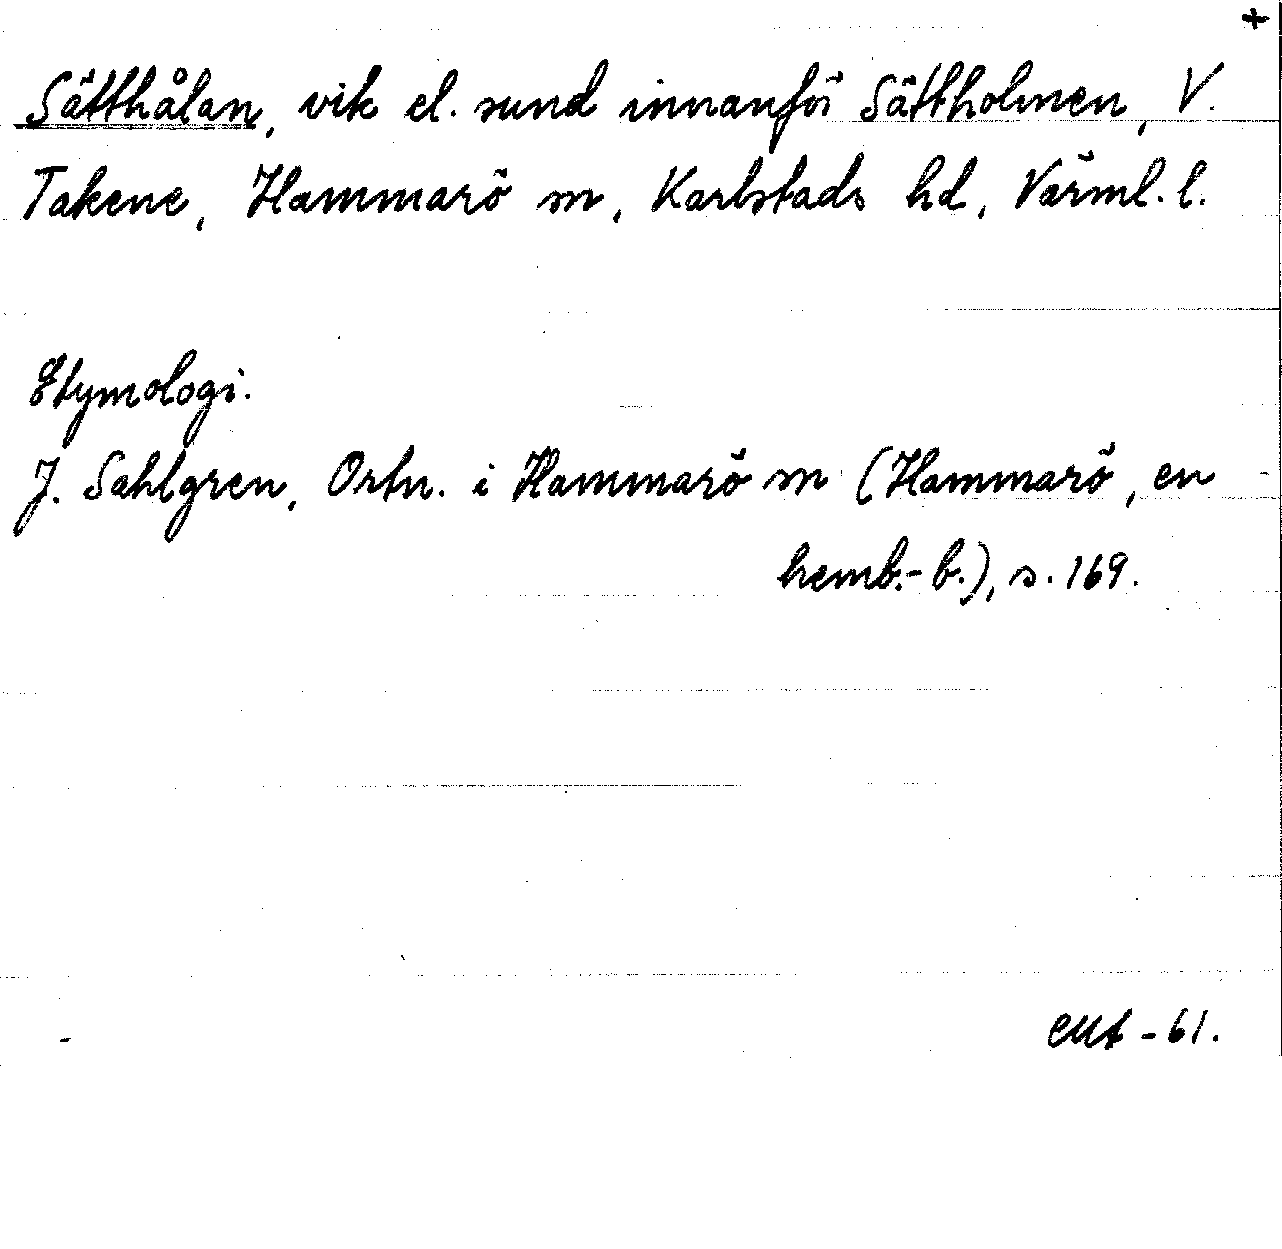 +
Sätthålan, vik el. sund innanför Sättholmen, V.
Takene, Hammarö sn, Karlstads hd, Värml. l.
Etymologi.
J. Sahlgren, Ortn. i Hammarö sn (Hammarö, en
hemb.-b.), s. 169.
-61.